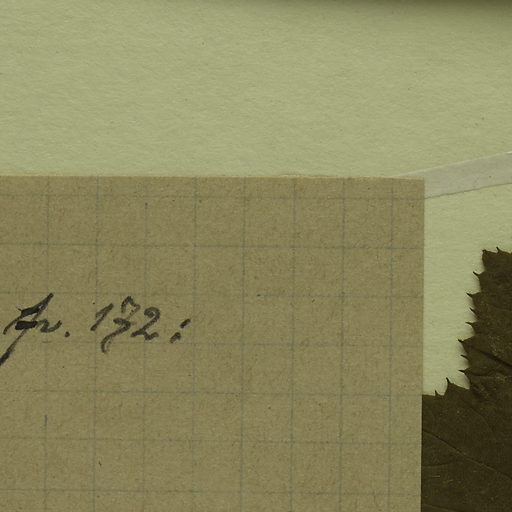 fr. 172: